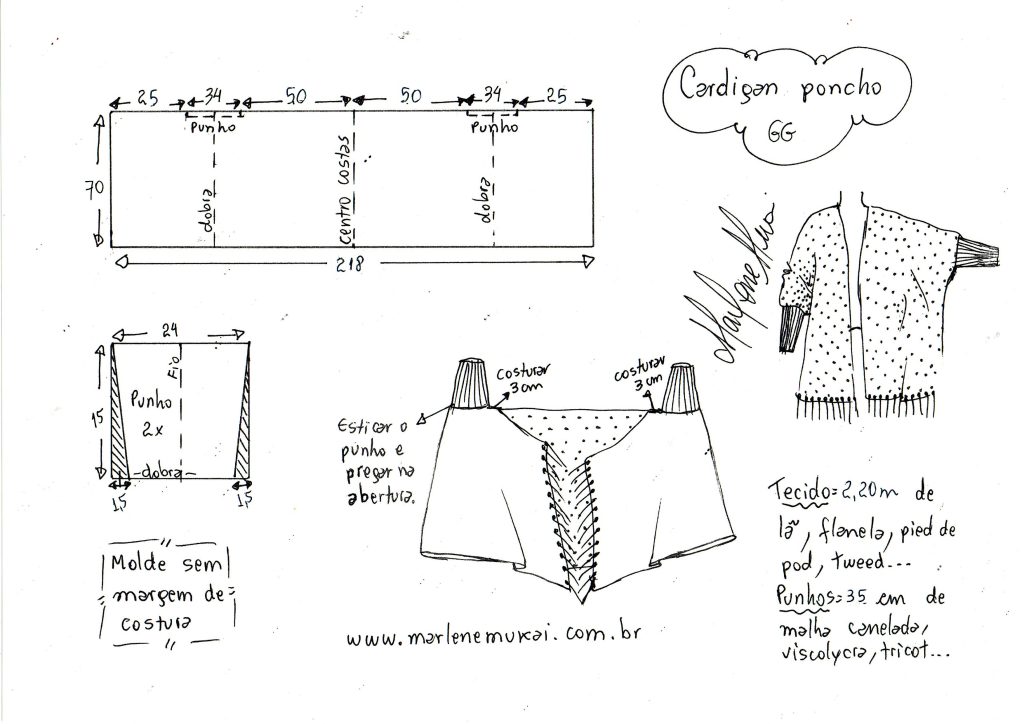 Cardigan poncho
GG
25 34 50 50 34 25
Punho
Punho
70
dobra
centro costas
dobra
218
24
Fio
15
Punho
2x
-dobra-
1,5
1,5
Molde sem
margem de
costura
costurar
3cm
costurar
3cm
Esticar o
punho e
pregar na
abertura.
www.marlenemukai.com.br
Tecido=2,20m de
lã, flanela, pied de
pod, tweed...
Punhos=35 cm de
malha canelada,
viscolycra, tricot...